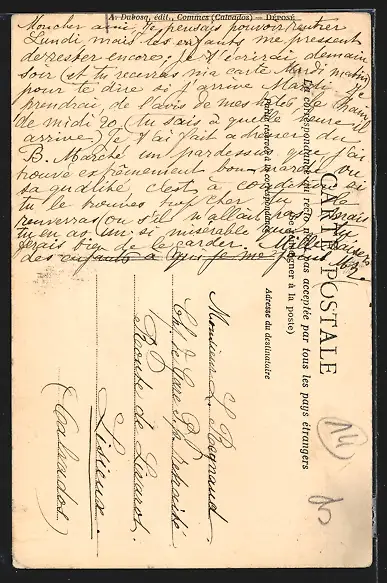 A. Dubosq, édit., Commes (Calvados) — Déposé
Mon cher ami, Je pensais pouvoir rentrer
Lundi, mais les enfants me pressent
de rester encore. Je t'écrirai demain
soir (et tu recevras ma carte Mardi matin)
pour te dire si j'arrive Mardi. Je
prendrai, de l'avis de mes hôtes, le train
de midi 20 (tu sais à quelle heure il
arrive). Je t'ai fait adresser du
B. Marché un pardessus que j'ai
trouvé extrêmement bon marché vu
sa qualité c'est à condition, si
tu le trouves trop cher tu le
renverras ou s'il n'allait pas, mais
tu en as un si misérable que tu
ferais bien de le garder. Mille baisers
des enfants à qui je me joins
CARTE POSTALE
La correspondance au recto n'est pas acceptée par tous les pays étrangers
(Se renseigner à la poste)
Partie réservée à la correspondance
Adresse du destinataire
Monsieur L. Regnaud
Ch. de Gare en retraite
Route de
Lisieux.
(Calvados)
14